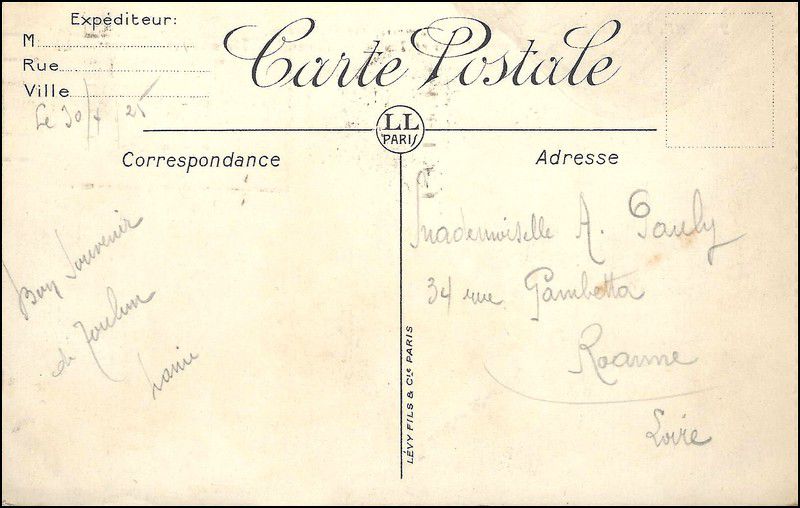 Expéditeur:
M
Rue
Ville
Le 30/4 25
Carte Postale
LL
PARIS
Correspondance
Adresse
Bon Souvenir
de Toulon
Mademoiselle A. Pauly
34 rue Gambetta
Roanne
Loire
LÉVY FILS & Cie PARIS